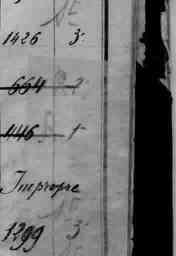 1426 3
664 2
446 1
Impropre
1299 3